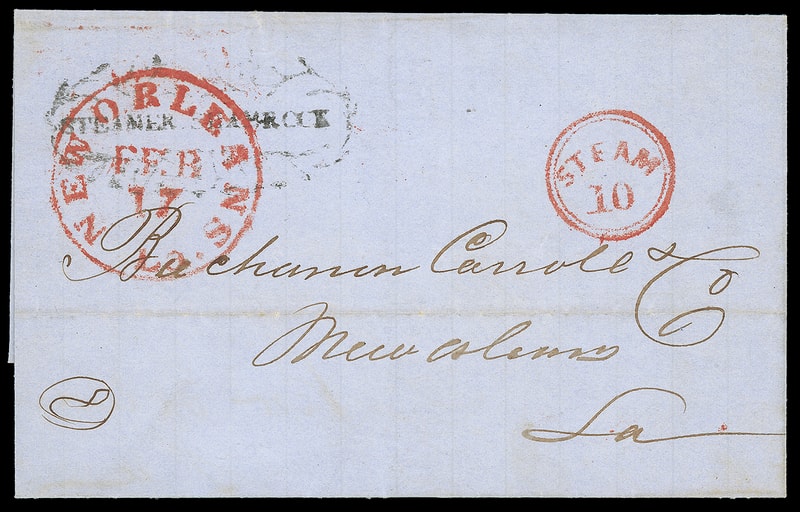 STEAMER
NEW ORLEANS
FEB
17
La.
STEAM
10
Buchanan Carroll & Co
New Orleans
La